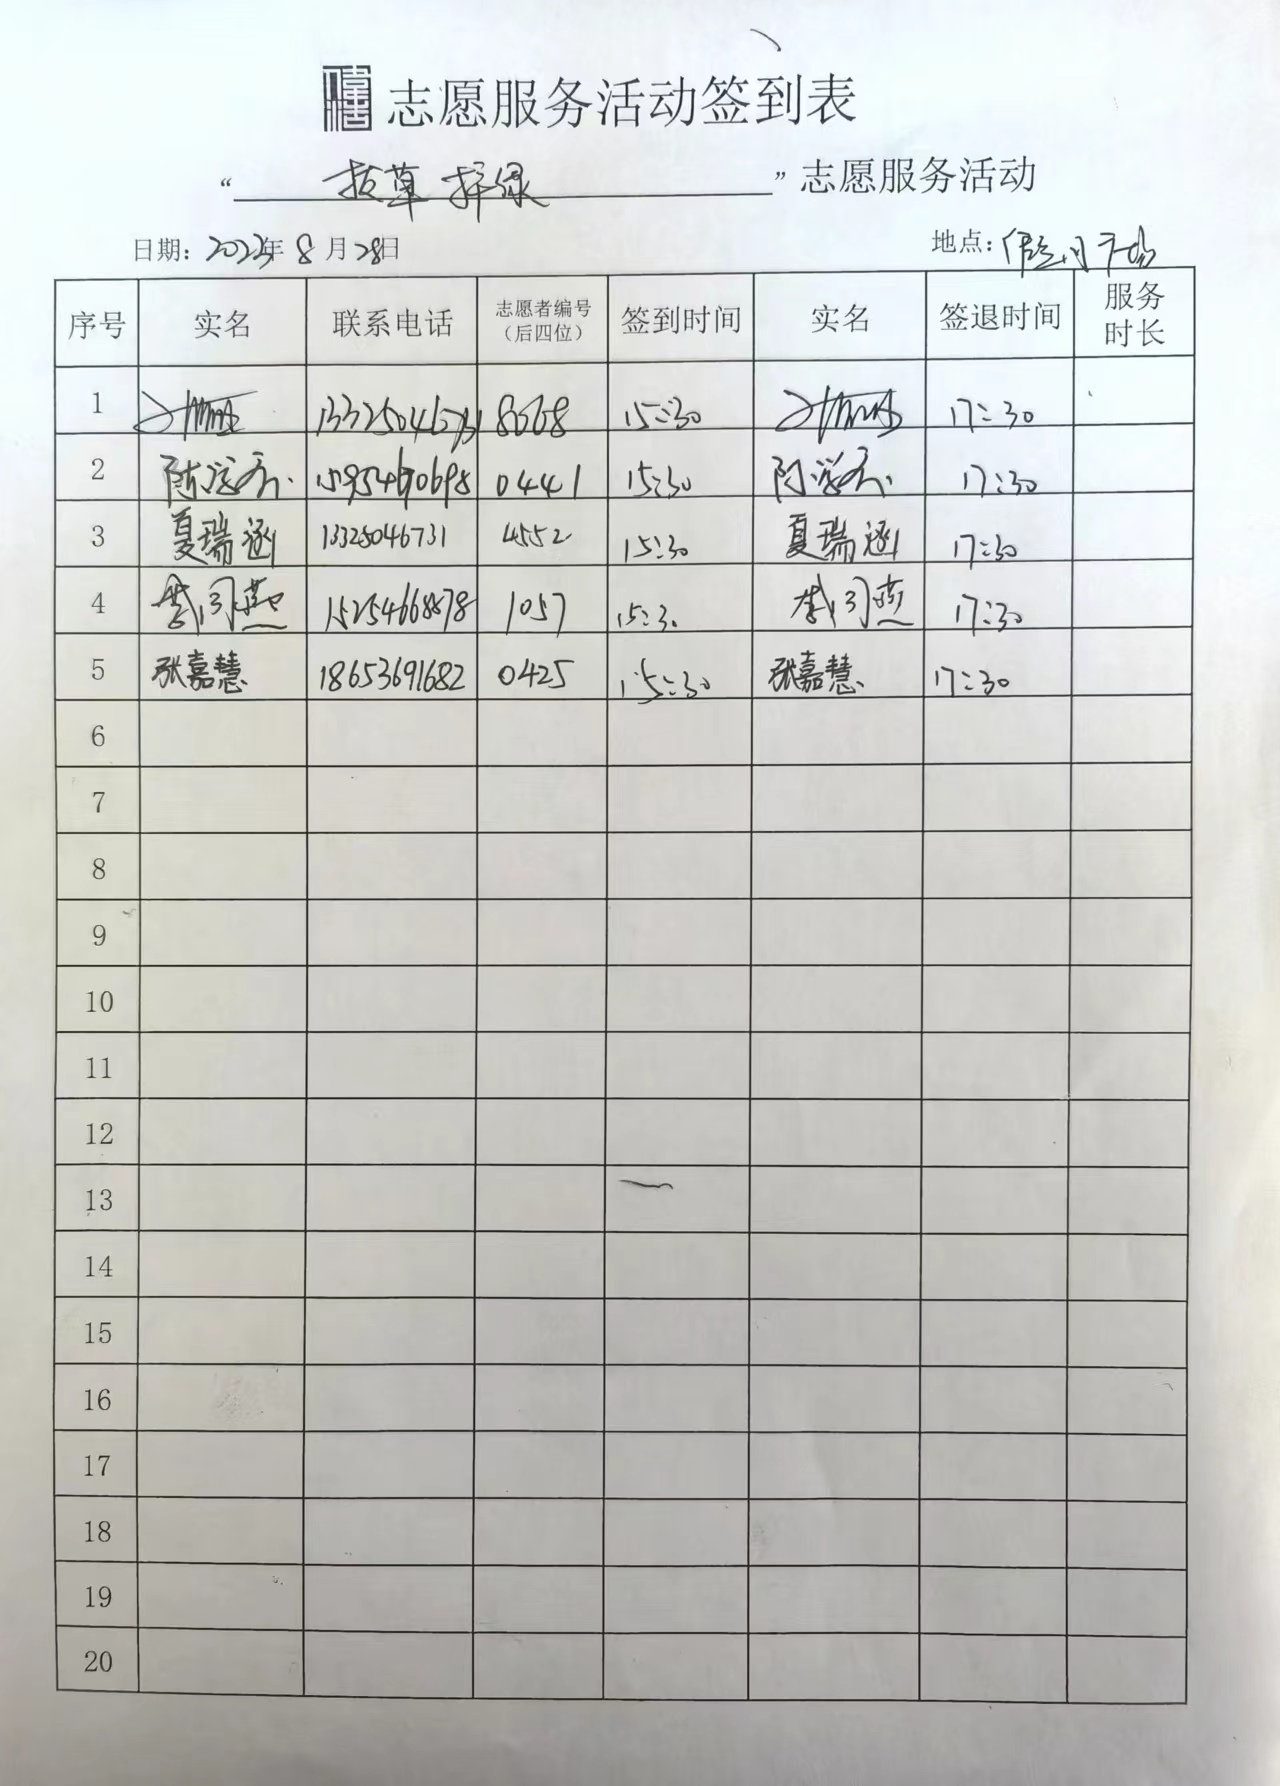 志愿服务活动签到表
“拔草择绿”志愿服务活动
日期：2023年8月28日 地点：
序号 实名 联系电话 志愿者编号（后四位） 签到时间 实名 签退时间 服务时长
1 8668 15:30 17:30
2 0441 15:30 17:30
3 夏瑞涵 13325046731 4552 15:30 夏瑞涵 17:30
4 1057 15:30 17:30
5 张嘉慧 18653691682 0425 15:30 张嘉慧 17:30
6
7
8
9
10
11
12
13
14
15
16
17
18
19
20